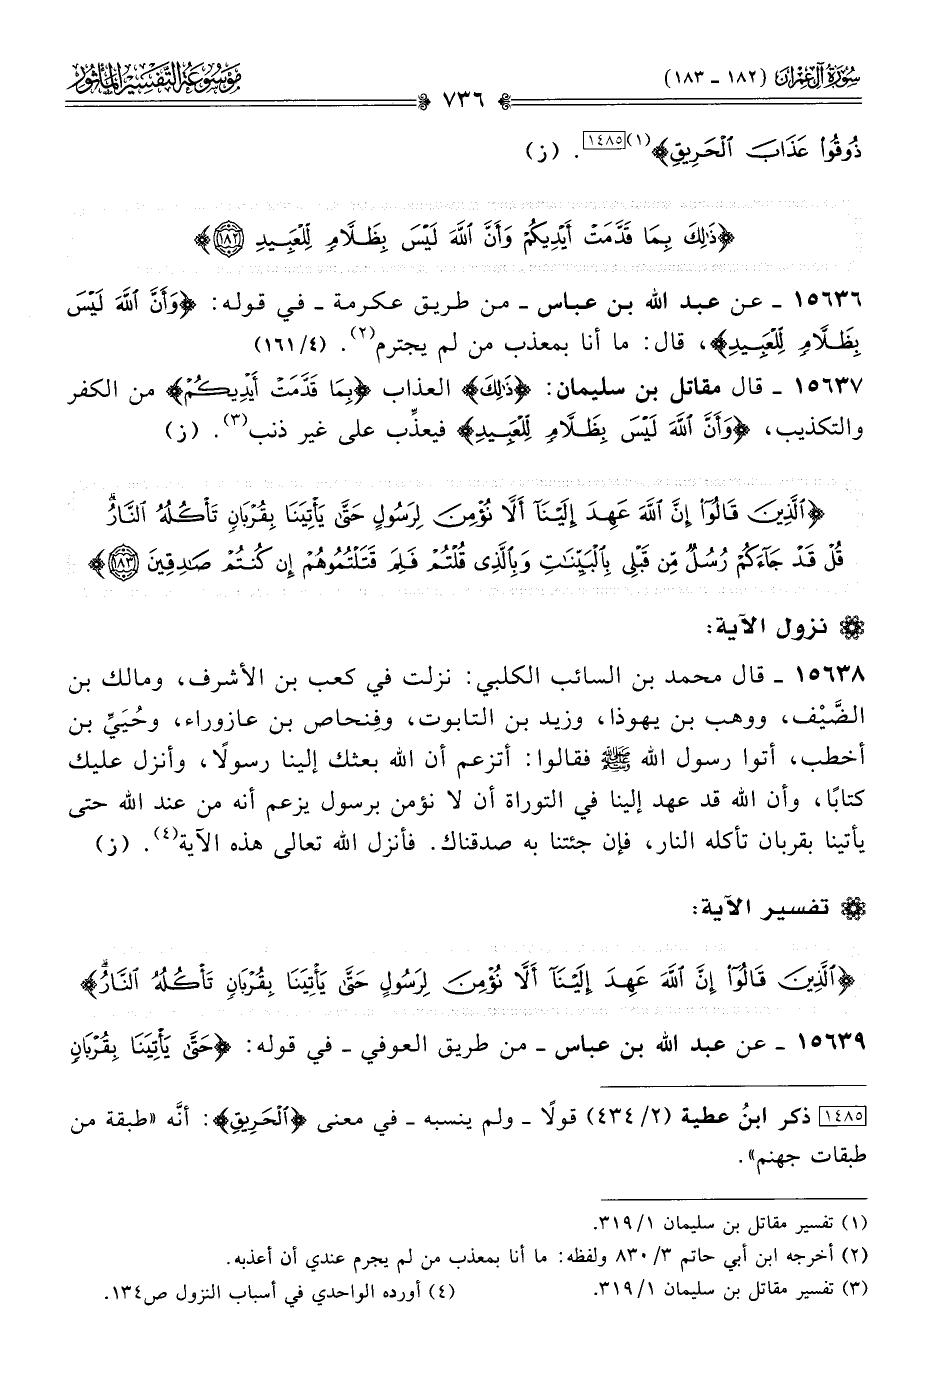 سورة آل عمران (١٨٢ - ١٨٣)
موسوعة التفسير المأثور
٧٣٦
ذُوقُوا۟ عَذَابَ ٱلْحَرِيقِ﴾(١)[١٤٨٥]. (ز)
﴿ذَٰلِكَ بِمَا قَدَّمَتْ أَيْدِيكُمْ وَأَنَّ ٱللَّهَ لَيْسَ بِظَلَّامٍ لِّلْعَبِيدِ ١٨٢﴾
١٥٦٣٦ ـ عن عبد الله بن عباس ـ من طريق عكرمة ـ في قوله: ﴿وَأَنَّ ٱللَّهَ لَيْسَ
بِظَلَّامٍ لِّلْعَبِيدِ﴾، قال: ما أنا بمعذب من لم يجترم(٢). (٤/ ١٦١)
١٥٦٣٧ ـ قال مقاتل بن سليمان: ﴿ذَٰلِكَ﴾ العذاب ﴿بِمَا قَدَّمَتْ أَيْدِيكُمْ﴾ من الكفر
والتكذيب، ﴿وَأَنَّ ٱللَّهَ لَيْسَ بِظَلَّامٍ لِّلْعَبِيدِ﴾ فيعذِّب على غير ذنب(٣). (ز)
﴿ٱلَّذِينَ قَالُوٓا۟ إِنَّ ٱللَّهَ عَهِدَ إِلَيْنَآ أَلَّا نُؤْمِنَ لِرَسُولٍ حَتَّىٰ يَأْتِيَنَا بِقُرْبَانٍ تَأْكُلُهُ ٱلنَّارُ ۗ
قُلْ قَدْ جَآءَكُمْ رُسُلٌ مِّن قَبْلِى بِٱلْبَيِّنَٰتِ وَبِٱلَّذِى قُلْتُمْ فَلِمَ قَتَلْتُمُوهُمْ إِن كُنتُمْ صَٰدِقِينَ ١٨٣﴾
نزول الآية:
١٥٦٣٨ ـ قال محمد بن السائب الكلبي: نزلت في كعب بن الأشرف، ومالك بن
الضَّيْف، ووهب بن يهوذا، وزيد بن التابوت، وفِنحاص بن عازوراء، وحُيَيِّ بن
أخطب، أتوا رسول الله ﷺ فقالوا: أتزعم أن الله بعثك إلينا رسولًا، وأنزل عليك
كتابًا، وأن الله قد عهد إلينا في التوراة أن لا نؤمن برسول يزعم أنه من عند الله حتى
يأتينا بقربان تأكله النار، فإن جئتنا به صدقناك. فأنزل الله تعالى هذه الآية(٤). (ز)
تفسير الآية:
﴿ٱلَّذِينَ قَالُوٓا۟ إِنَّ ٱللَّهَ عَهِدَ إِلَيْنَآ أَلَّا نُؤْمِنَ لِرَسُولٍ حَتَّىٰ يَأْتِيَنَا بِقُرْبَانٍ تَأْكُلُهُ ٱلنَّارُ ۗ﴾
١٥٦٣٩ ـ عن عبد الله بن عباس ـ من طريق العوفي ـ في قوله: ﴿حَتَّىٰ يَأْتِيَنَا بِقُرْبَانٍ
[١٤٨٥] ذكر ابنُ عطية (٢/ ٤٣٤) قولًا ـ ولم ينسبه ـ في معنى ﴿ٱلْحَرِيقِ﴾: أنَّه «طبقة من
طبقات جهنم».
(١) تفسير مقاتل بن سليمان ١/ ٣١٩.
(٢) أخرجه ابن أبي حاتم ٣/ ٨٣٠ ولفظه: ما أنا بمعذب من لم يجرم عندي أن أعذبه.
(٣) تفسير مقاتل بن سليمان ١/ ٣١٩. (٤) أورده الواحدي في أسباب النزول ص١٣٤.